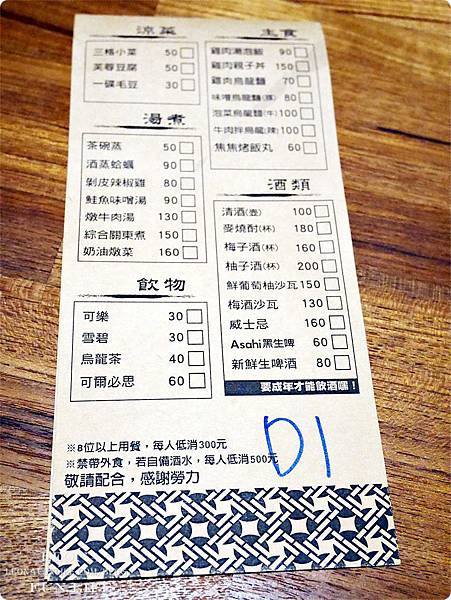 涼菜
三樣小菜 50
芙蓉豆腐 50
一碟毛豆 30
湯煮
茶碗蒸 50
酒蒸蛤蠣 90
剝皮辣椒雞 80
鮭魚味噌湯 90
燉牛肉湯 130
綜合關東煮 150
奶油燉菜 160
飲物
可樂 30
雪碧 30
烏龍茶 40
可爾必思 60
主食
雞肉湯泡飯 90
雞肉親子丼 150
雞肉烏龍麵 70
味噌烏龍麵(豚) 80
泡菜烏龍麵(牛) 100
牛肉拌烏龍(辣) 100
焦焦烤飯丸 50
酒類
清酒(壺) 100
麥燒酎(杯) 180
梅子酒(杯) 160
柚子酒(杯) 200
鮮葡萄柚沙瓦 150
梅酒沙瓦 130
威士忌 160
Asahi黑生啤 60
新鮮生啤酒 80
要成年才能飲酒喔！
D1
※8位以上用餐，每人低消300元
※禁帶外食，若自備酒水，每人低消500元
敬請配合，感謝勞力